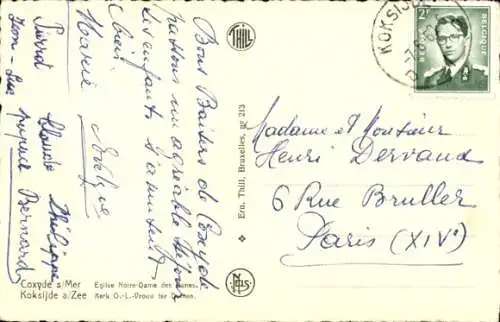 Bons Baisers de Coxyde
passons un agréable séjour
les enfants s'amusent
bien.
Marie Evelyne
Pierrot Claude Philippe
Jean-Luc Bernard
Coxyde s/Mer
Koksijde a/Zee
Eglise Notre-Dame des Dunes.
Kerk O.-L.-Vrouw ter Duinen.
THILL
Ern. Thill, Bruxelles, nº 213
NELS
KOKSIJDE
2F
BELGIE
BELGIQUE
Madame et Monsieur
Henri Dervaud
6 Rue Bruller
Paris (XIVe)